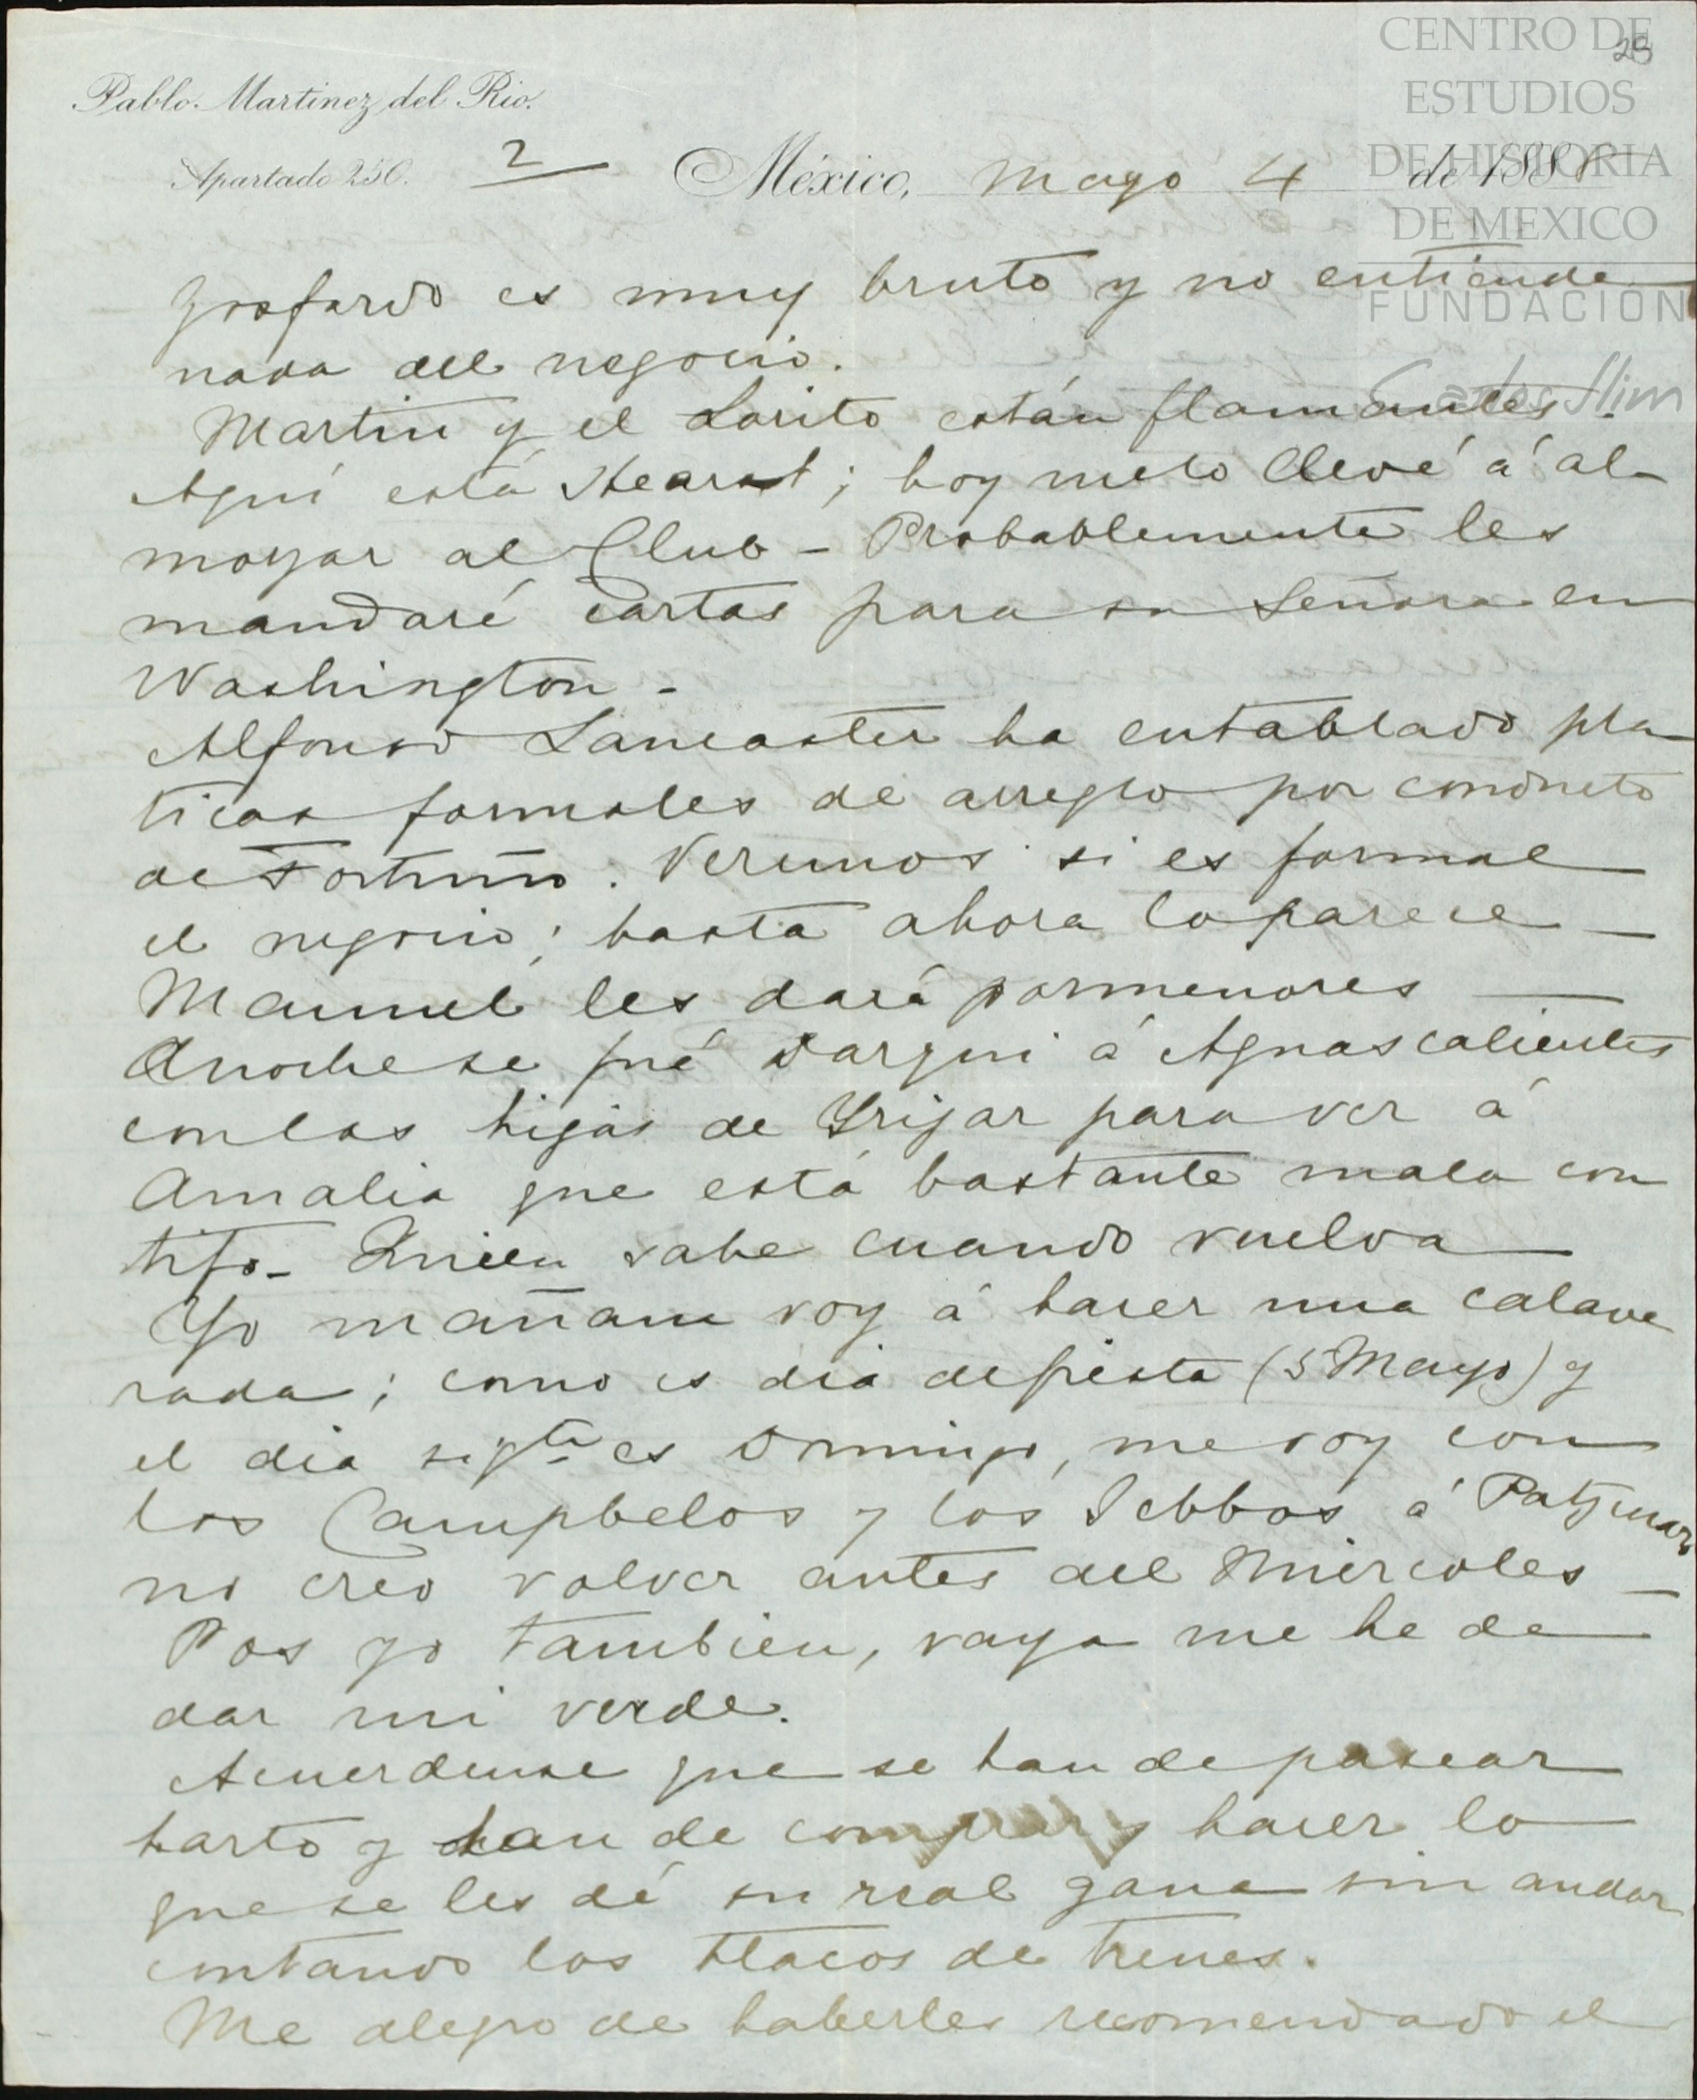 CENTRO DE
ESTUDIOS
DE HISTORIA
DE MEXICO
FUNDACIÓN
Carlos Slim
25
Pablo Martinez del Rio.
Apartado 250.
2
México, Mayo 4 de 188
es muy bruto y no entiende
nada del negocio.
Martin y el Lorito están flamantes.
Aquí está Hearst; hoy melo llevé á al-
mozar al Club - Probablemente les
mandaré cartas para su Señora en
Washington -
Alfonso Lancaster ha entablado pla
ticas formales de arreglo por conducto
de Fortuño. Veremos si es formal
el negocio; hasta ahora lo parece —
Manuel les dará pormenores —
Anoche se fué Darqui á Aguascalientes
con las hijas de Yrigar para ver á
Amalia que está bastante mala con
tifo - Quien sabe cuando vuelva —
Yo mañana voy á hacer una calave
rada; como es dia de fiesta (5 Mayo) y
el dia sigte es Domingo, me voy con
los Campbelos y los Sebbos á Patzcuaro
no creo volver antes del Miércoles —
Pos yo tambien, vaya me he de
dar mi verde.
Acuerdense que se han de pasear
harto y han de comprar y hacer lo
que se les dé su real gana sin andar
contando los tlacos de trenes.
Me alegro de haberles recomendado el